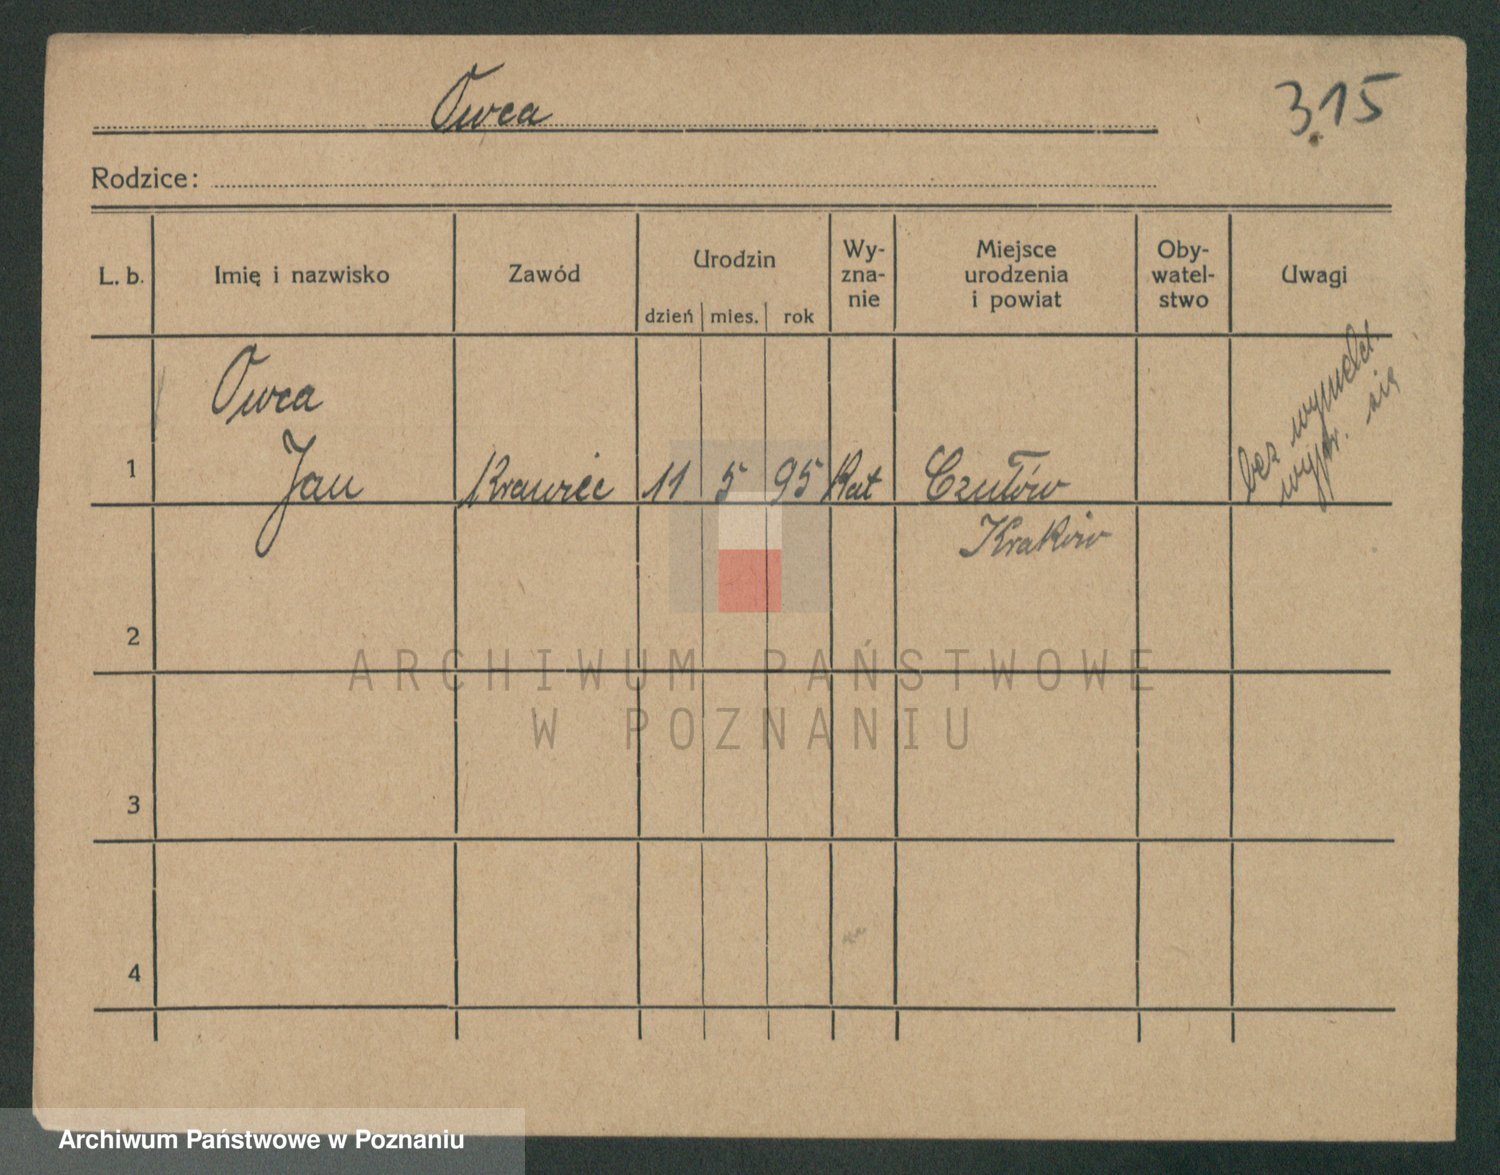 Owca
3.15
Rodzice:
L. b.
Imię i nazwisko
Zawód
Urodzin
dzień
mies.
rok
Wy-
zna-
nie
Miejsce
urodzenia
i powiat
Oby-
watel-
stwo
Uwagi
Owca
1
Jan
Krawiec
11
5
95
Kat
Czułów
Kraków
bez wymeld.
wypr. się
2
3
4
ARCHIWUM PAŃSTWOWE
W POZNANIU
Archiwum Państwowe w Poznaniu